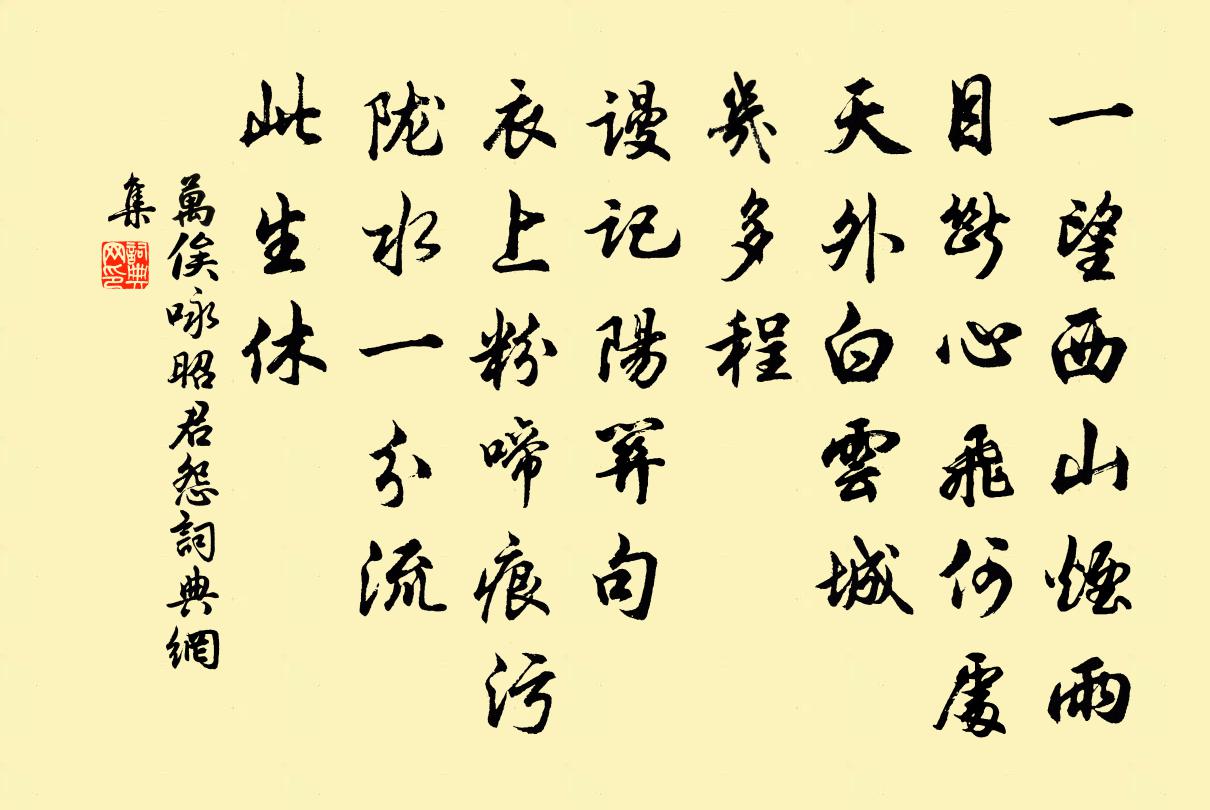 一望西山煙雨
目斷心飛何處
天外白雲城
幾多程
謾記陽關句
衣上粉啼痕污
陇水一分流
此生休
萬俟咏昭君怨詞典網
集
詞典網印